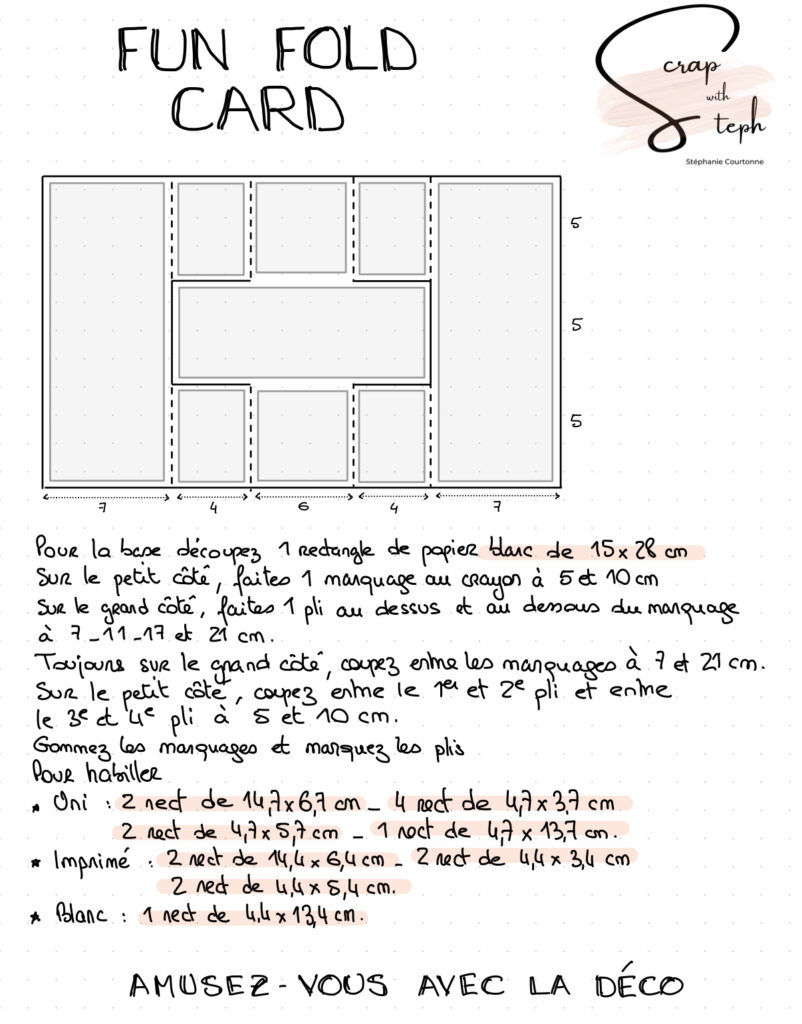 FUN FOLD
CARD
Scrap
with
Steph
Stéphanie Courtonne
5
5
5
7 4 6 4 7
Pour la base découpez 1 rectangle de papier blanc de 15 x 28 cm
Sur le petit côté, faites 1 marquage au crayon à 5 et 10 cm
Sur le grand côté, faites 1 pli au dessus et au dessous du marquage
à 7 _ 11 _ 17 et 21 cm.
Toujours sur le grand côté, coupez entre les marquages à 7 et 21 cm.
Sur le petit côté, coupez entre le 1er et 2e pli et entre
le 3e et 4e pli à 5 et 10 cm.
Gommez les marquages et marquez les plis
Pour habiller
* Uni : 2 rect de 14,7 x 6,7 cm _ 4 rect de 4,7 x 3,7 cm
2 rect de 4,7 x 5,7 cm _ 1 rect de 4,7 x 13,7 cm.
* Imprimé : 2 rect de 14,4 x 6,4 cm _ 2 rect de 4,4 x 3,4 cm
2 rect de 4,4 x 5,4 cm.
* Blanc : 1 rect de 4,4 x 13,4 cm.
AMUSEZ-VOUS AVEC LA DÉCO